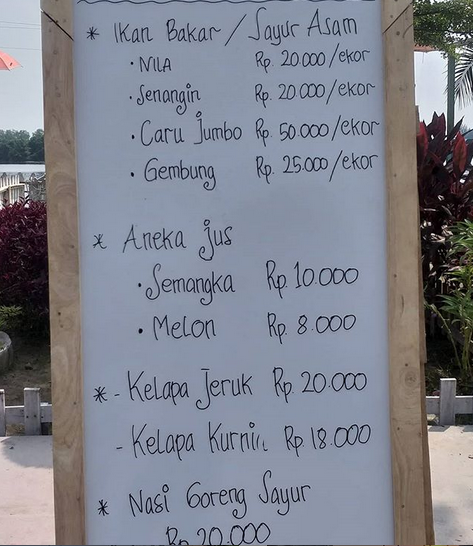 * Ikan Bakar / Sayur Asam
• NILA Rp. 20.000/ekor
• Senangin Rp. 20.000/ekor
• Caru Jumbo Rp. 50.000/ekor
• Gembung Rp. 25.000/ekor
* Aneka jus
• Semangka Rp. 10.000
• Melon Rp. 8.000
* - Kelapa Jeruk Rp. 20.000
- Kelapa Rp. 18.000
* Nasi Goreng Sayur
Rp. 20.000